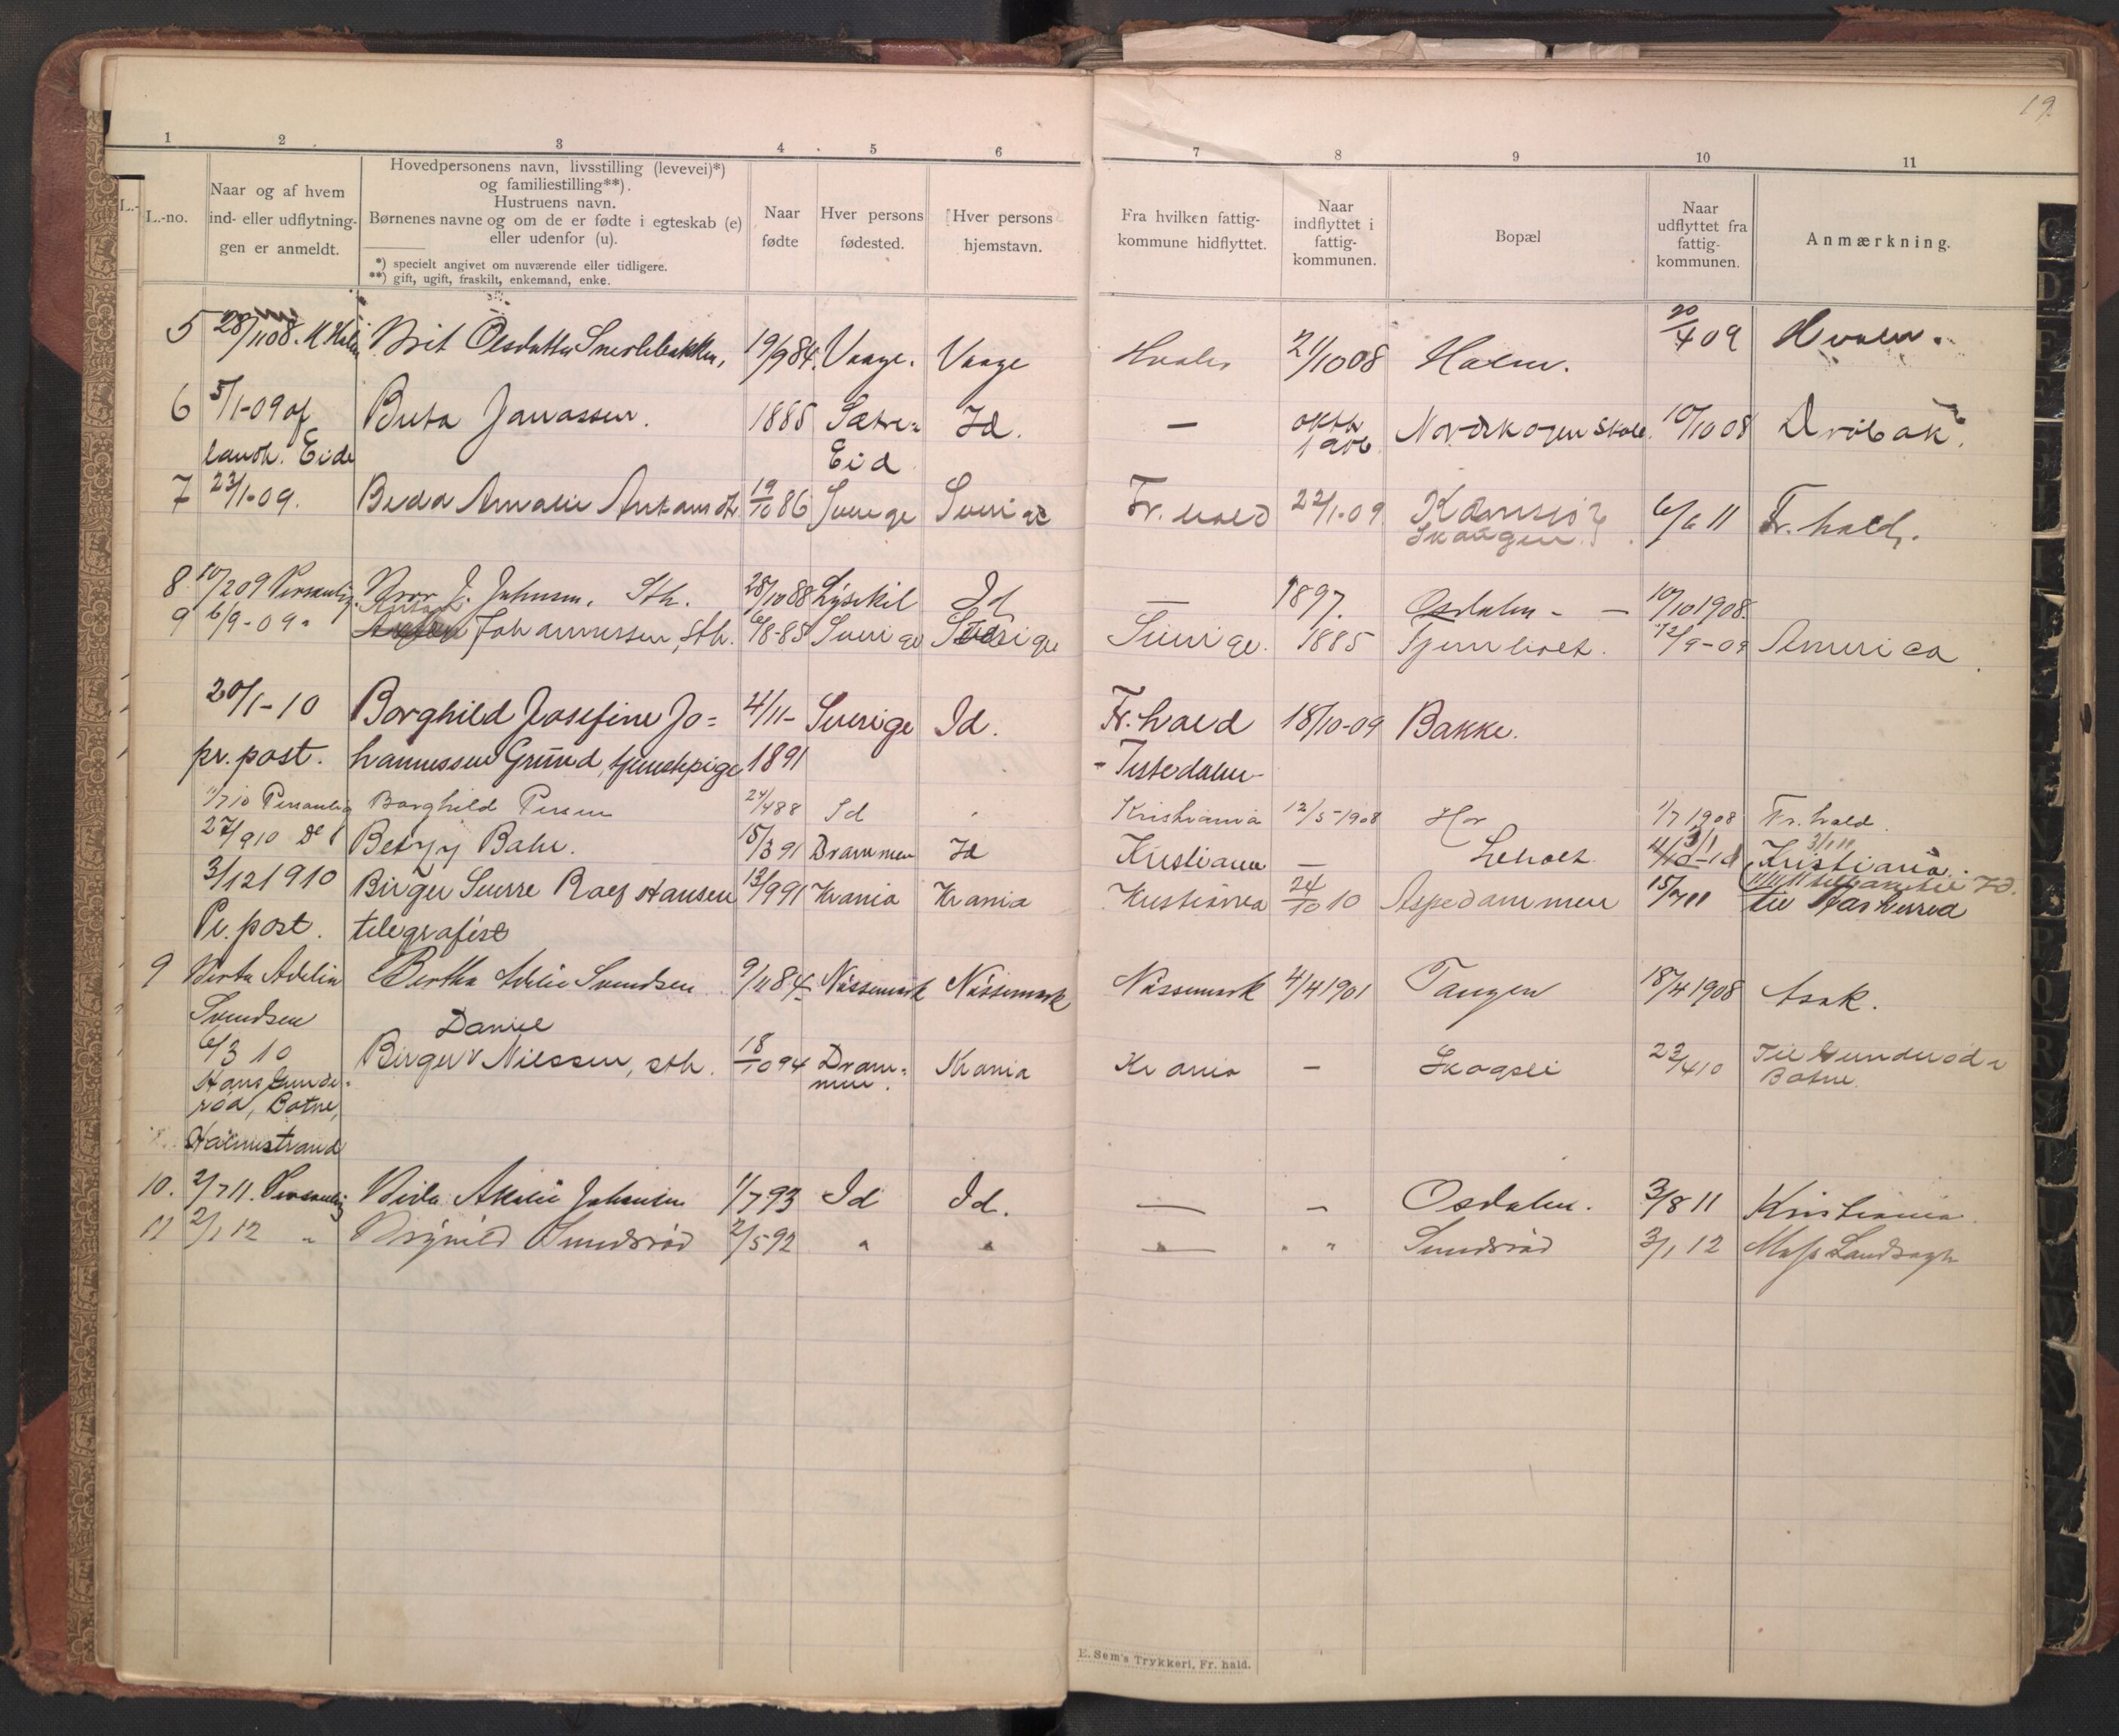 19.
1 2 3 4 5 6 7 8 9 10 11
L.-no.
Naar og af hvem
ind- eller udflytnin-
gen er anmeldt.
Hovedpersonens navn, livsstilling (levevei)*)
og familiestilling**).
Hustruens navn.
Børnenes navne og om de er fødte i egteskab (e)
eller udenfor (u).
*) specielt angivet om nuværende eller tidligere.
**) gift, ugift, fraskilt, enkemand, enke.
Naar
fødte
Hver persons
fødested.
Hver persons
hjemstavn.
Fra hvilken fattig-
kommune hidflyttet.
Naar
indflyttet i
fattig-
kommunen.
Bopæl
Naar
udflyttet fra
fattig-
kommunen.
Anmærkning.
5 28/11 08. Brit Olsdatter 19/9 84. Vaage. Vaage Hvaler 21/10 08 Holm. 20/4 09 Hvaler.
6 5/1-09 af Janassen. 1885 Id. — oktbr Nordskogen Skole 10/10 08 Drøbak.
landh. Eide Eid 1906
7 23/1-09. Beda Amalie 19/10 86 Sverige Sverige Fr. hald 22/1-09 6/6 11 Fr. hald.
Skaugen
8 10/2 09 Personlig J. Johnsen. Sth. 28/10 88 Lysekil Id — 1897. Osdalen - — 10/10 1908.
9 6/9-09 " Johannessen, sth. 6/8-85 Sverige Sverige Sverige. 1885 12/9-09 America.
20/1-10 Borghild Josefine Jo= 4/11- Sverige Id. Fr. hald 18/10-09 Bakke.
pr. post. hannessen Grund, tjenestpige 1891 - Tistedalen -
1/7 10 Personlig Borghild Persen 24/4 88 Id Kristiania 12/5-1908 Hov 1/7 1908 Fr. hald.
27/9 10 Do Betzy Bahr. 15/3 91 Drammen Id Kristiania — Kristiania.
3/1 11
3/12 1910 Birger Sverre Roef Hansen 13/9 91 Krania Krania Kristiania 24/10 10 Aspedammen
Pr. post. telegrafist
9 Berta Adelin Bertha Svendsen 9/11 84 Nössemark Nössemark Nössemark 4/4 1901 Tangen 18/4 1908 Asak.
Svendsen
Daniel
6/3 10 Birger Nilssen, sth. 18/10 94 Dram= Krania Krania — 23/4 10 Til
Hans Gunde= men. Botne.
rød, Botne,
Holmestrand
10. 2/7 11. Personlig Johansen 1/7 93 Id Id. — — Osdalen. 3/8 11 Kristiania.
11 2/1 12 " Sundsrød 2/5 92 " " — " " Sundsrød 3/1 12
E. Sem's Trykkeri, Fr. hald.